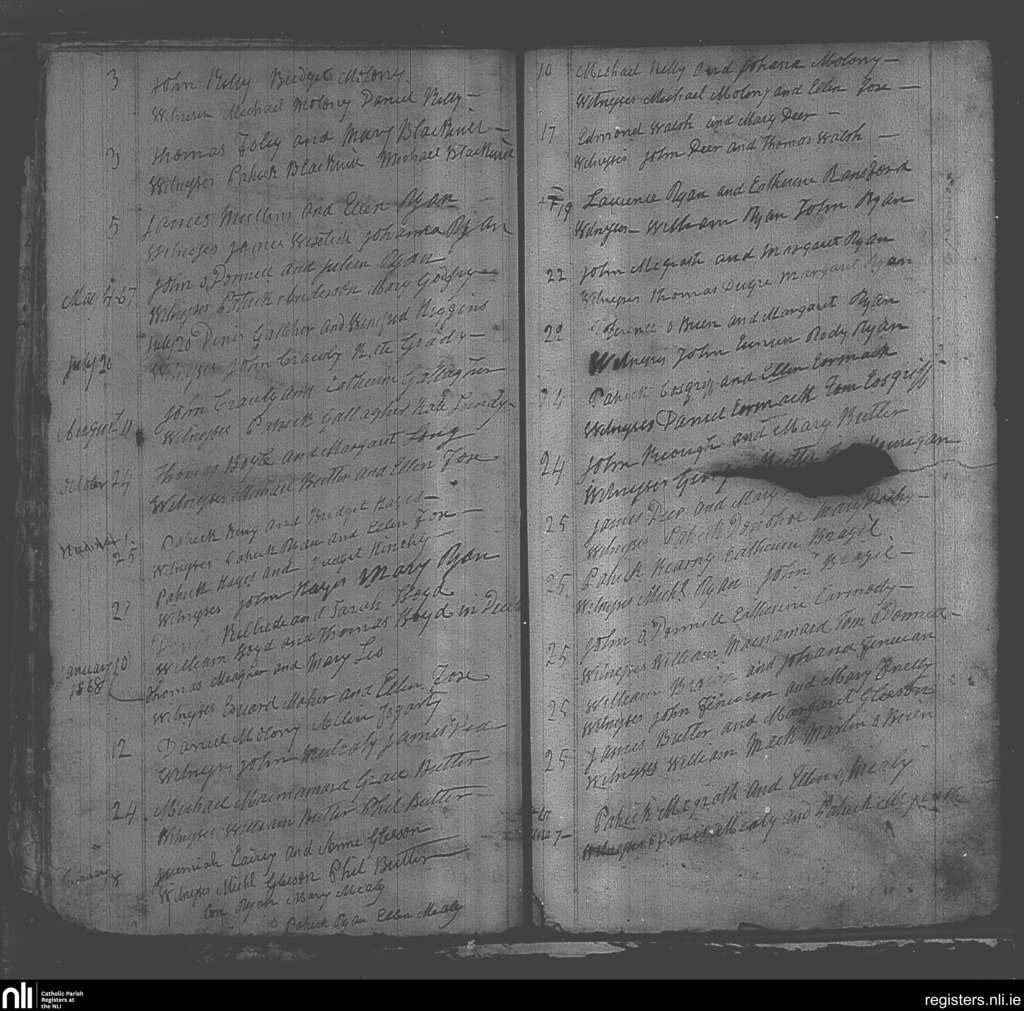 3 John Kelly Bridget Molony
Witneses Michael Molony Daniel Kelly
3 Thomas Foley and Mary Blackwell
Witnesses Patrick Blackwell Michael Blackwell
5 James Mullins and Ellen Ryan
Witneses James Johanna Ryan
John o Donnell and Ryan
May 4 67 Witneses Patrick Anderson Mary Godfry
July 20 Denis Gallaher and Winefred Higgins
July 20 Witneses John Grawdy Kate Grady
John Grawdy and Catherine Gallagher
August 11 Witneses Patrick Gallagher Kate
Thomas Boyle and Margaret Long
October 24 Witneses Michael Butler and Ellen Foxe
Patrick King and Bridget Hayes
Witneses Patrick Ryan and Ellen Fox
25 Patrick Hayes and Bridget Hinchy
Witneses John Hayes Mary Ryan
28 Denis Kilbride and Sarah Boyd
William Boyd and Thomas Boyd
January 10 Thomas Meagher and Mary Leo
1868 Witneses Edward Maher and Ellen Foxe
12 Daniel Molony Ellen Fogarty
Witneses John Mulcahy James
24 Michael Macnamara Grace Butler
Witneses William Butler Phil Butler
Jeremiah and Anne Gleeson
Witneses Michl Gleeson Phil Butler
Con Ryan Mary Mealy
Patrick Ryan Ellen Mealy
10 Michael Kelly and Johana Molony
Witneses Michael Molony and Ellen Foxe
17 Edmond Walsh and Mary Deer
Witneses John Deer and Thomas Walsh
19 Laurence Ryan and Catherine Ransford
Witneses William Ryan John Ryan
22 John Mcgrath and Margaret Ryan
Witneses Thomas Margaret Ryan
22 Terence o Brien and Margaret Ryan
Witneses John Rody Ryan
24 Patrick Cosgriff and Ellen Cormack
Witneses Daniel Cormack Tom Cosgriff
24 John Keough and Mary Butler
Witneses George
25 James Deer and Mary
Witneses Patrick Donohoe Mary
25 Patrick Hearny Catherine Brazil
Witneses Michl Ryan John Brazil
25 John o Donnell Catherine Carmody
Witneses William Macnamara Tom o Donnell
25 William and Johana Finucan
Witneses John Finucan and Mary Fnelly
25 James Butler and Margaret Gleeson
Witneses William Mack Martin o Brien
Patrick Mcgrath and Ellen Mealy
7 Witneses Denis Mealy and Patrick Mcgrath
nli Catholic Parish
Registers at
the NLI
registers.nli.ie